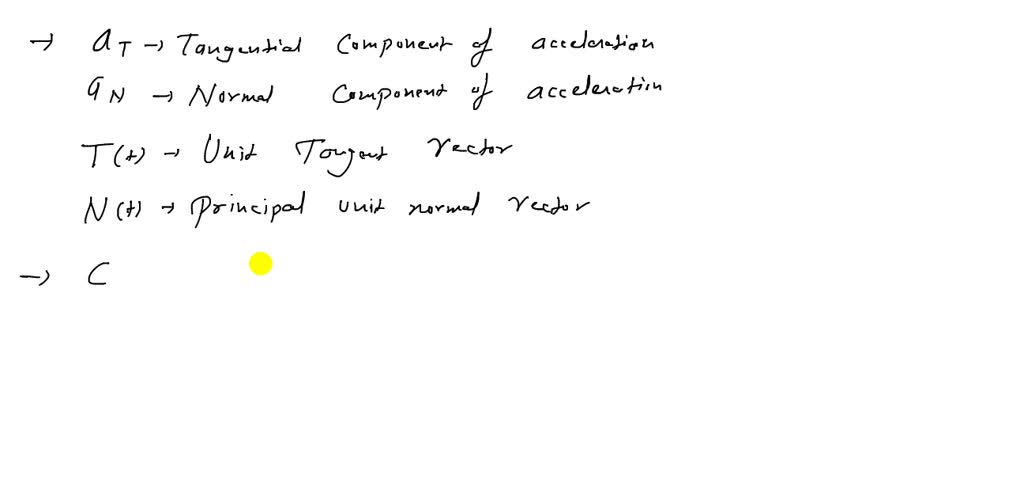 → a_T → Tangential Component of acceleration
a_N → Normal Component of acceleration
T(t) → Unit Tangent vector
N(t) → Principal unit normal vector
→ C